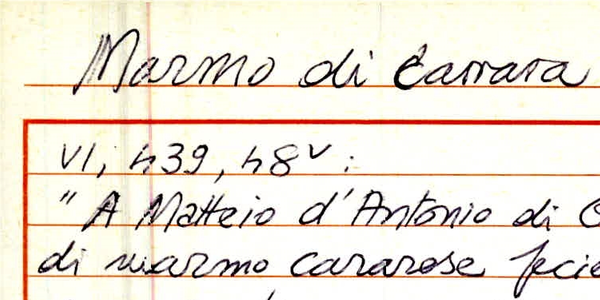 Marmo di Carrara
VI, 439, 48v:
"A Matteio d'Antonio di
di marmo cararese fecie